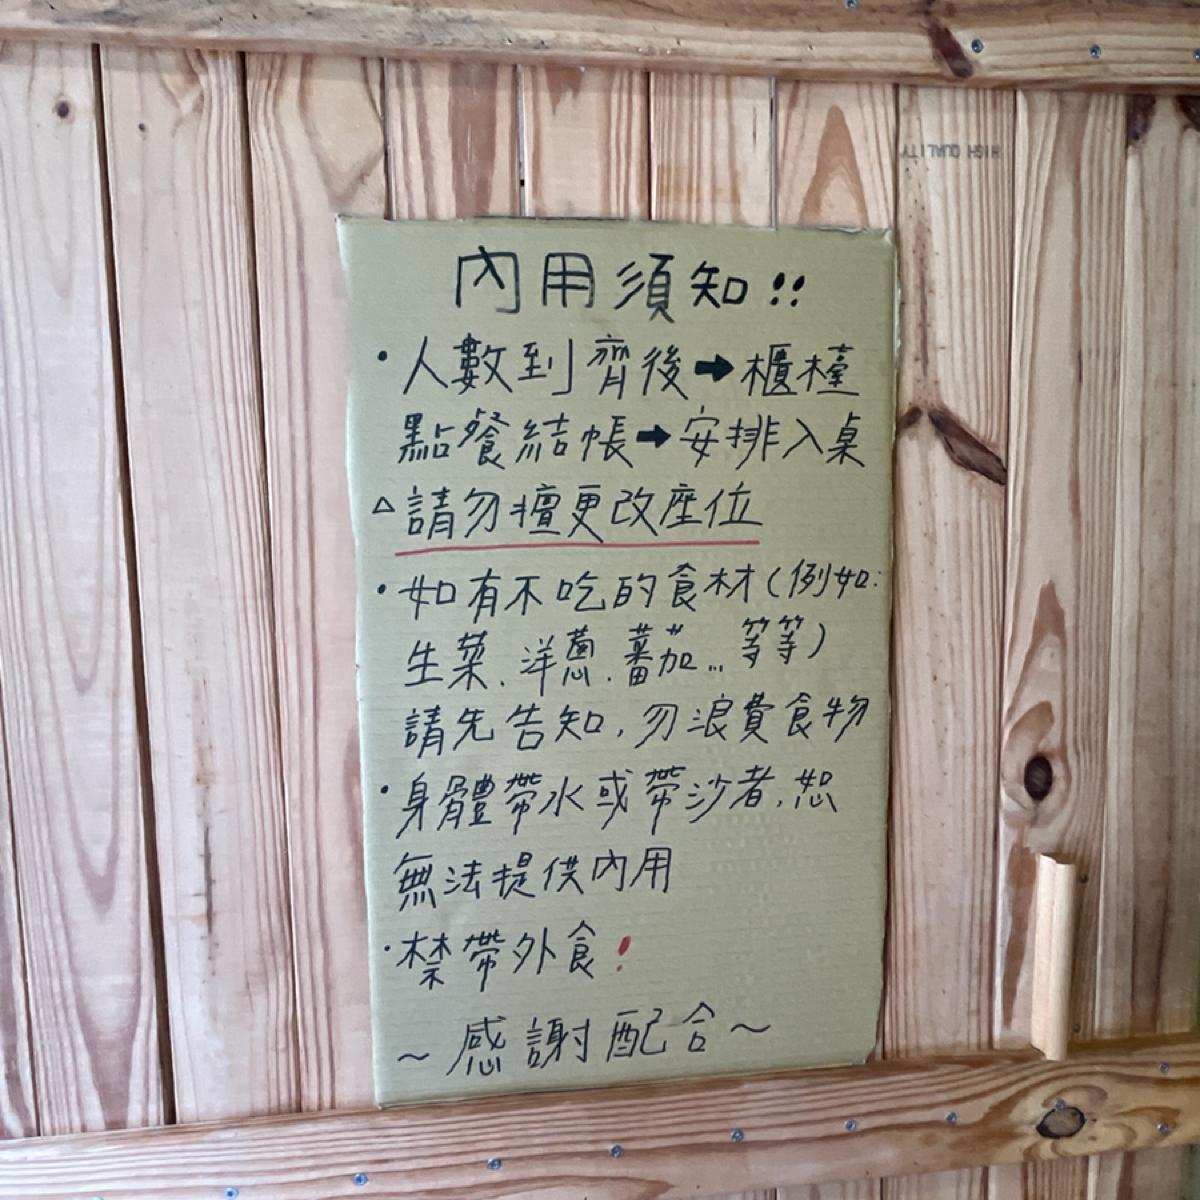 HIGH QUALITY
內用須知!!
•人數到齊後➡櫃檯
點餐結帳➡安排入桌
△請勿擅更改座位
•如有不吃的食材(例如:
生菜、洋蔥、蕃茄...等等)
請先告知,勿浪費食物
•身體帶水或帶沙者,恕
無法提供內用
•禁帶外食!
~感謝配合~